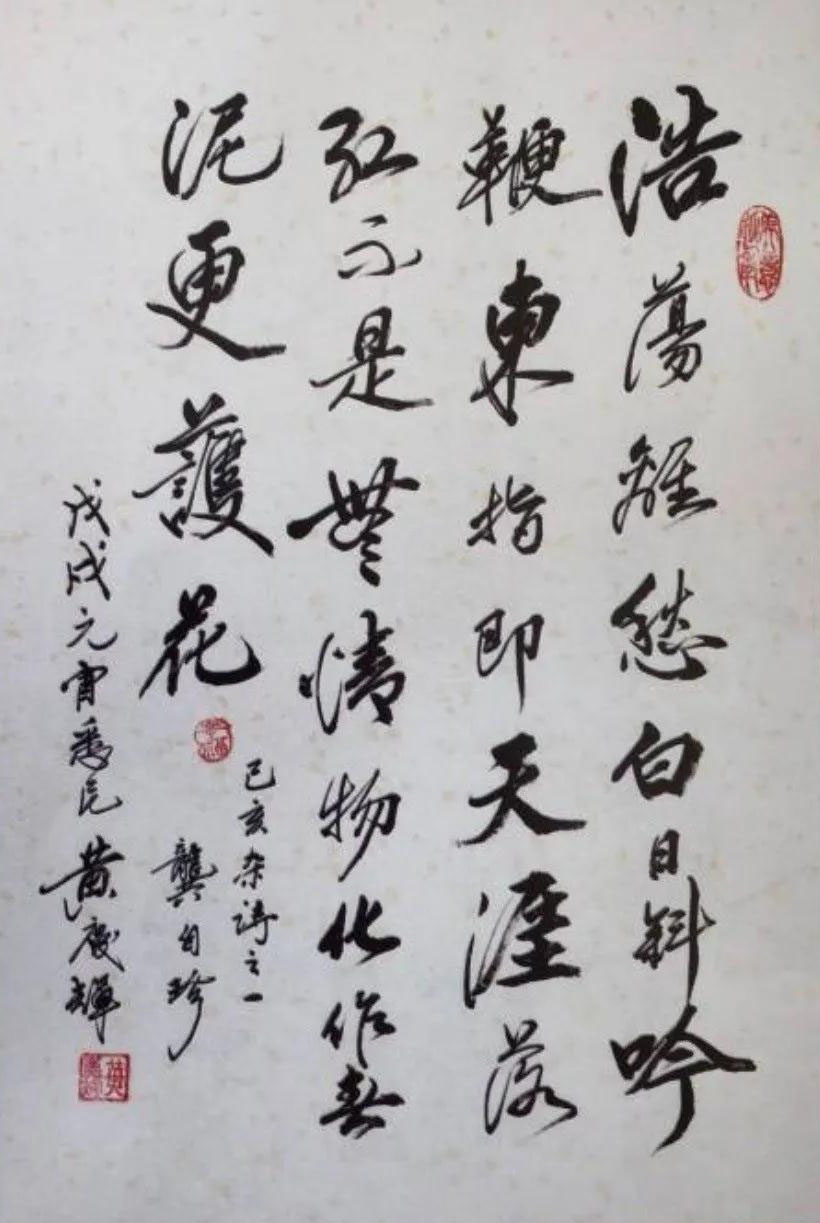 浩蕩離愁白日斜吟
鞭東指即天涯落
红不是無情物化作春
泥更護花
己亥杂诗之一
龔自珍
戊戌元宵悉尼黄慶輝